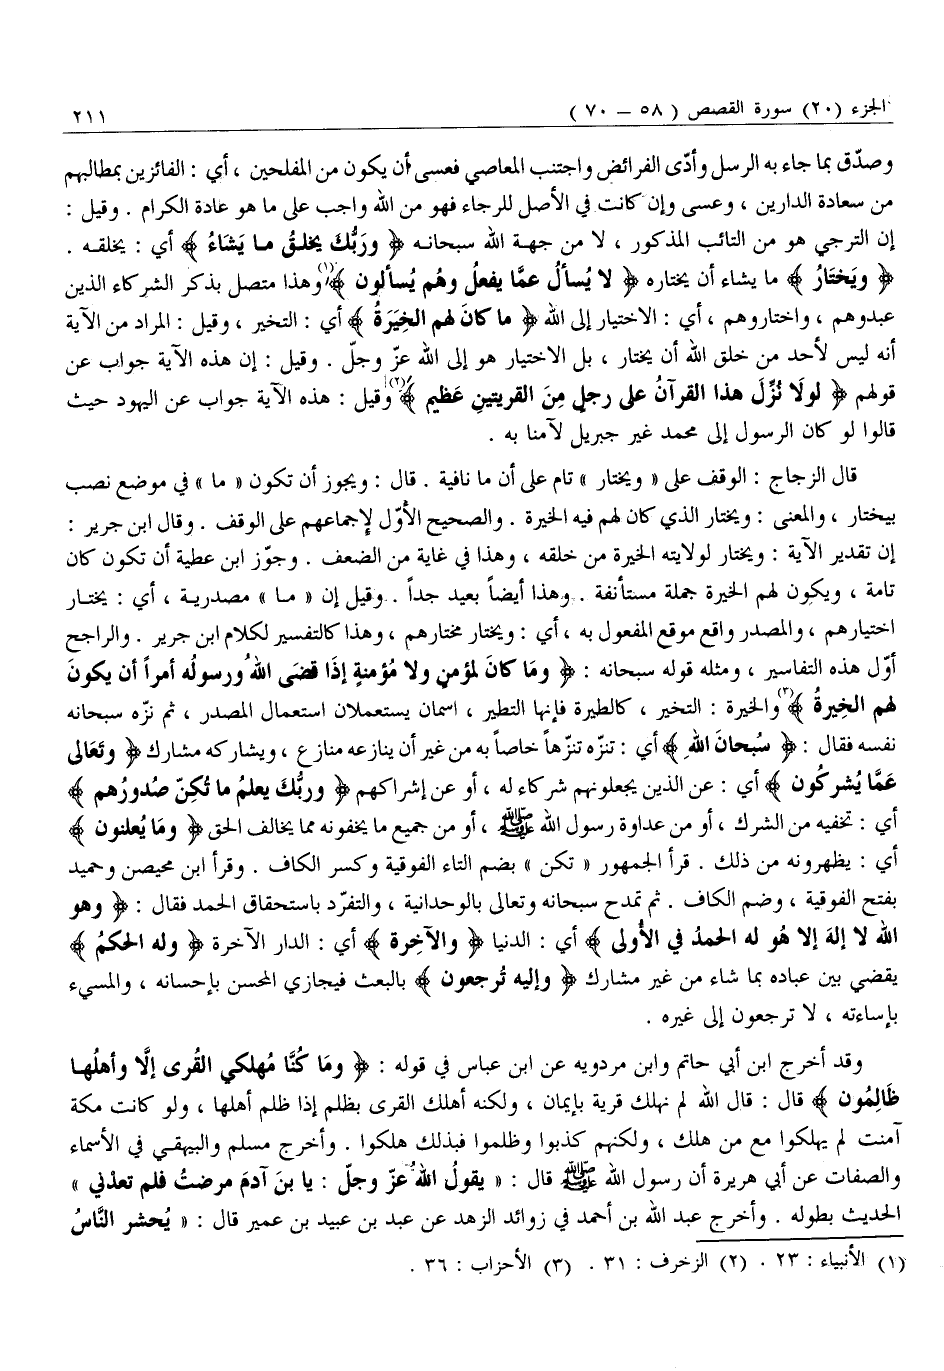 الجزء (٢٠) سورة القصص ( ٥٨ – ٧٠ ) ٢١١
وصدّق بما جاء به الرسل وأدّى الفرائض واجتنب المعاصي فعسى أن يكون من المفلحين ، أي : الفائزين بمطالبهم
من سعادة الدارين ، وعسى وإن كانت في الأصل للرجاء فهو من الله واجب على ما هو عادة الكرام . وقيل :
إن الترجي هو من التائب المذكور ، لا من جهة الله سبحانه ﴿ ورَبُّكَ يخلقُ ما يَشَاءُ ﴾ أي : يخلقه .
﴿ ويَختَارُ ﴾ ما يشاء أن يختاره ﴿ لا يُسألُ عمَّا يفعلُ وهُم يُسألون ﴾(١) وهذا متصل بذكر الشركاء الذين
عبدوهم ، واختاروهم ، أي : الاختيار إلى الله ﴿ ما كانَ لهم الخِيَرَةُ ﴾ أي : التخير ، وقيل : المراد من الآية
أنه ليس لأحد من خلق الله أن يختار ، بل الاختيار هو إلى الله عزّ وجلّ . وقيل : إن هذه الآية جواب عن
قولهم ﴿ لولَا نُزِّلَ هذا القرآنُ على رجلٍ مِنَ القريتينِ عَظيم ﴾(٢) وقيل : هذه الآية جواب عن اليهود حيث
قالوا لو كان الرسول إلى محمد غير جبريل لآمنا به .
قال الزجاج : الوقف على « ويختار » تام على أن ما نافية . قال : ويجوز أن تكون « ما » في موضع نصب
بيختار ، والمعنى : ويختار الذي كان لهم فيه الخيرة . والصحيح الأوّل لإجماعهم على الوقف . وقال ابن جرير :
إن تقدير الآية : ويختار لولايته الخيرة من خلقه ، وهذا في غاية من الضعف . وجوّز ابن عطية أن تكون كان
تامة ، ويكون لهم الخيرة جملة مستأنفة . وهذا أيضاً بعيد جداً . وقيل إن « ما » مصدرية ، أي : يختار
اختيارهم ، والمصدر واقع موقع المفعول به ، أي : ويختار مختارهم ، وهذا كالتفسير لكلام ابن جرير . والراجح
أوّل هذه التفاسير ، ومثله قوله سبحانه : ﴿ ومَا كانَ لمؤمنٍ ولا مُؤمنةٍ إذَا قضَى اللهُ ورسولُه أمراً أن يكونَ
لهم الخِيرةُ ﴾(٣) والخيرة : التخير ، كالطيرة فإنها التطير ، اسمان يستعملان استعمال المصدر ، ثم نزّه سبحانه
نفسه فقال : ﴿ سُبحانَ اللهِ ﴾ أي : تنزّه تنزّهاً خاصاً به من غير أن ينازعه منازع ، ويشاركه مشارك ﴿ وتَعَالى
عَمَّا يُشركُون ﴾ أي : عن الذين يجعلونهم شركاء له ، أو عن إشراكهم ﴿ وربُّكَ يعلمُ ما تُكنّ صُدورُهم ﴾
أي : تخفيه من الشرك ، أو من عداوة رسول الله ﷺ ، أو من جميع ما يخفونه مما يخالف الحق ﴿ ومَا يُعلنون ﴾
أي : يظهرونه من ذلك . قرأ الجمهور « تكن » بضم التاء الفوقية وكسر الكاف . وقرأ ابن محيصن وحميد
بفتح الفوقية ، وضم الكاف . ثم تمدح سبحانه وتعالى بالوحدانية ، والتفرّد باستحقاق الحمد فقال : ﴿ وهو
الله لا إلهَ إلا هُو له الحمدُ في الأُولى ﴾ أي : الدنيا ﴿ والآخِرة ﴾ أي : الدار الآخرة ﴿ وله الحكمُ ﴾
يقضي بين عباده بما شاء من غير مشارك ﴿ وإليه تُرجعون ﴾ بالبعث فيجازي المحسن بإحسانه ، والمسيء
بإساءته ، لا ترجعون إلى غيره .
وقد أخرج ابن أبي حاتم وابن مردويه عن ابن عباس في قوله : ﴿ ومَا كُنَّا مُهلكي القُرى إلَّا وأهلُها
ظَالِمُون ﴾ قال : قال الله لم نهلك قرية بإيمان ، ولكنه أهلك القرى بظلم إذا ظلم أهلها ، ولو كانت مكة
آمنت لم يهلكوا مع من هلك ، ولكنهم كذبوا وظلموا فبذلك هلكوا . وأخرج مسلم والبيهقي في الأسماء
والصفات عن أبي هريرة أن رسول الله ﷺ قال : « يقولُ اللهُ عزّ وجلّ : يا بنَ آدمَ مرضتُ فلم تعدْني »
الحديث بطوله . وأخرج عبد الله بن أحمد في زوائد الزهد عن عبد بن عبيد بن عمير قال : « يُحشر النَّاسُ
(١) الأنبياء : ٢٣ . (٢) الزخرف : ٣١ . (٣) الأحزاب : ٣٦ .